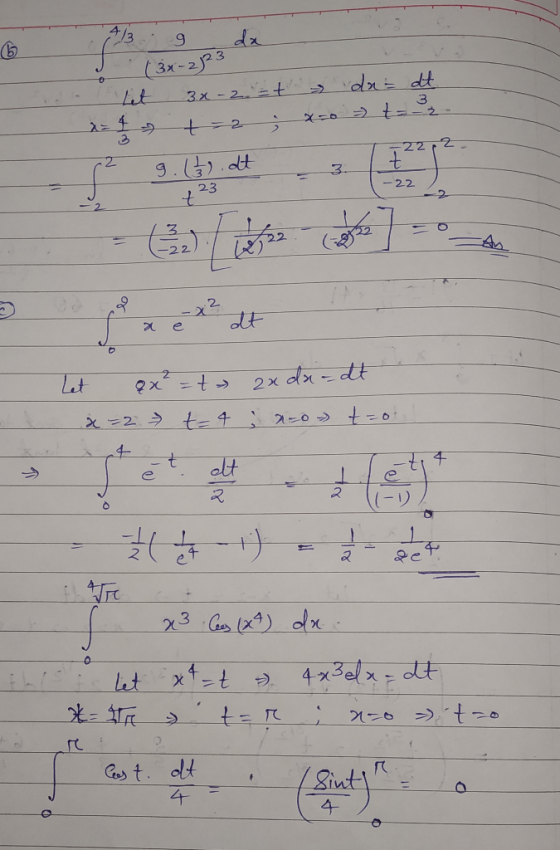 (b) ∫₀^{4/3} 9/(3x-2)^{23} dx
Let 3x-2 = t ⇒ dx = dt/3
x = 4/3 ⇒ t = 2 ; x=0 ⇒ t = -2
= ∫₋₂^{2} 9·(1/3)·dt / t^{23} = 3. (t^{-22}/-22)₋₂^{2}
= (3/-22) · [1/(2)^{22} - 1/(-2)^{22}] = 0 Ans
c) ∫₀^{2} x e^{-x^2} dt
Let x^2 = t ⇒ 2x dx = dt
x = 2 ⇒ t = 4 ; x=0 ⇒ t=0
⇒ ∫₀^{4} e^{-t}. dt/2 = 1/2 (e^{-t}/(-1))₀^{4}
= -1/2 (1/e^4 - 1) = 1/2 - 1/2e^4
∫₀^{⁴√π} x^3 Cos(x^4) dx
Let x^4 = t ⇒ 4x^3 dx = dt
x = ⁴√π ⇒ t = π ; x=0 ⇒ t=0
∫₀^{π} Cos t. dt/4 = (Sint/4)₀^{π} = 0